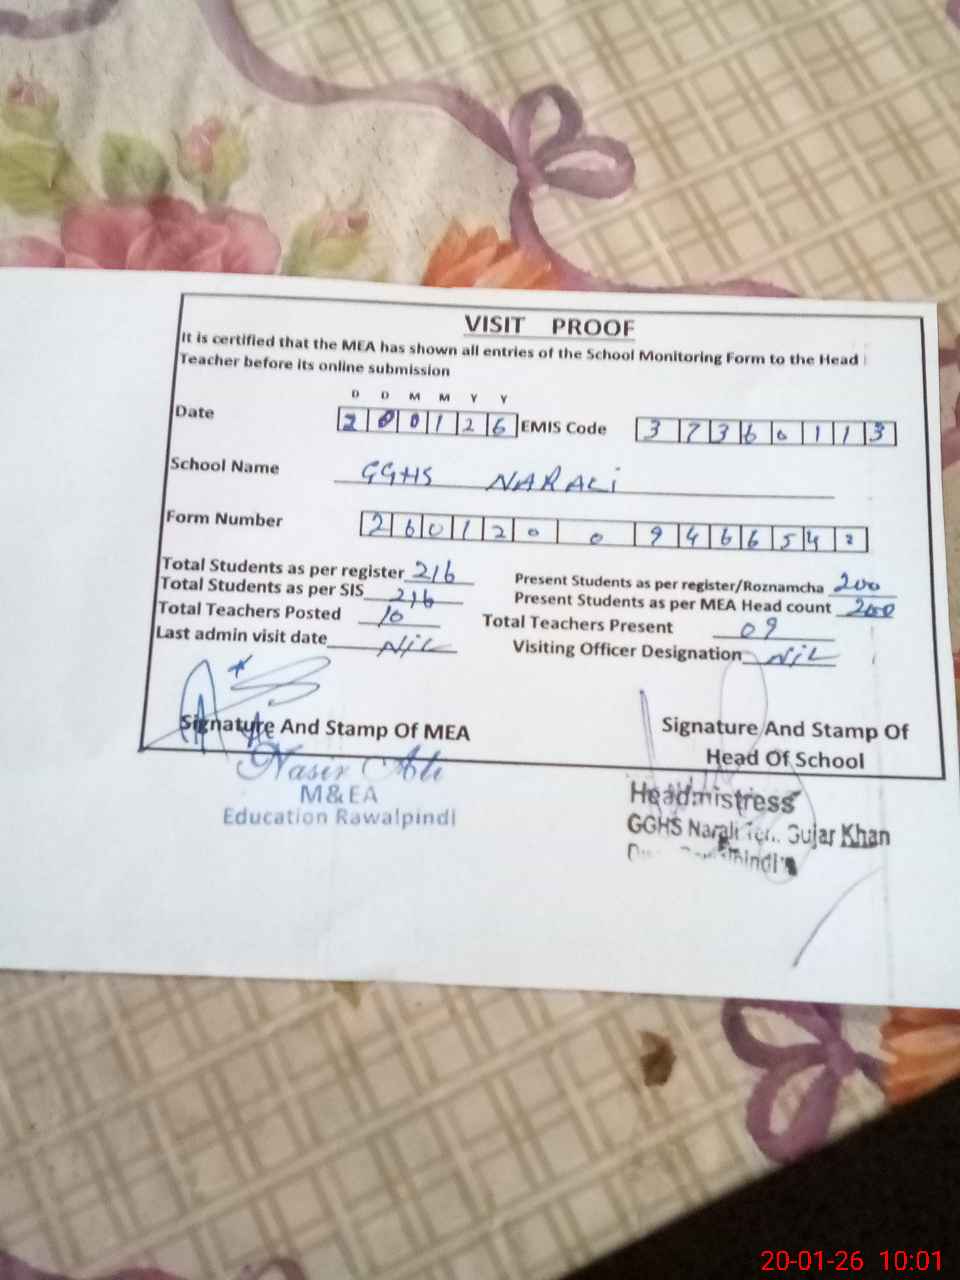 VISIT PROOF
It is certified that the MEA has shown all entries of the School Monitoring Form to the Head
Teacher before its online submission
D D M M Y Y
Date 2 0 0 1 2 6 EMIS Code 3 7 3 6 0 1 1 3
School Name GGHS NARALI
Form Number 2 6 0 1 2 0 0 9 4 6 6 5 4
Total Students as per register 216 Present Students as per register/Roznamcha 200
Total Students as per SIS 216 Present Students as per MEA Head count 200
Total Teachers Posted 10 Total Teachers Present 09
Last admin visit date NIL Visiting Officer Designation NIL
Signature And Stamp Of MEA Signature And Stamp Of
Head Of School
Nasir Ali
M&EA
Education Rawalpindi
Headmistress
GGHS Narali Teh. Gujar Khan
20-01-26 10:01